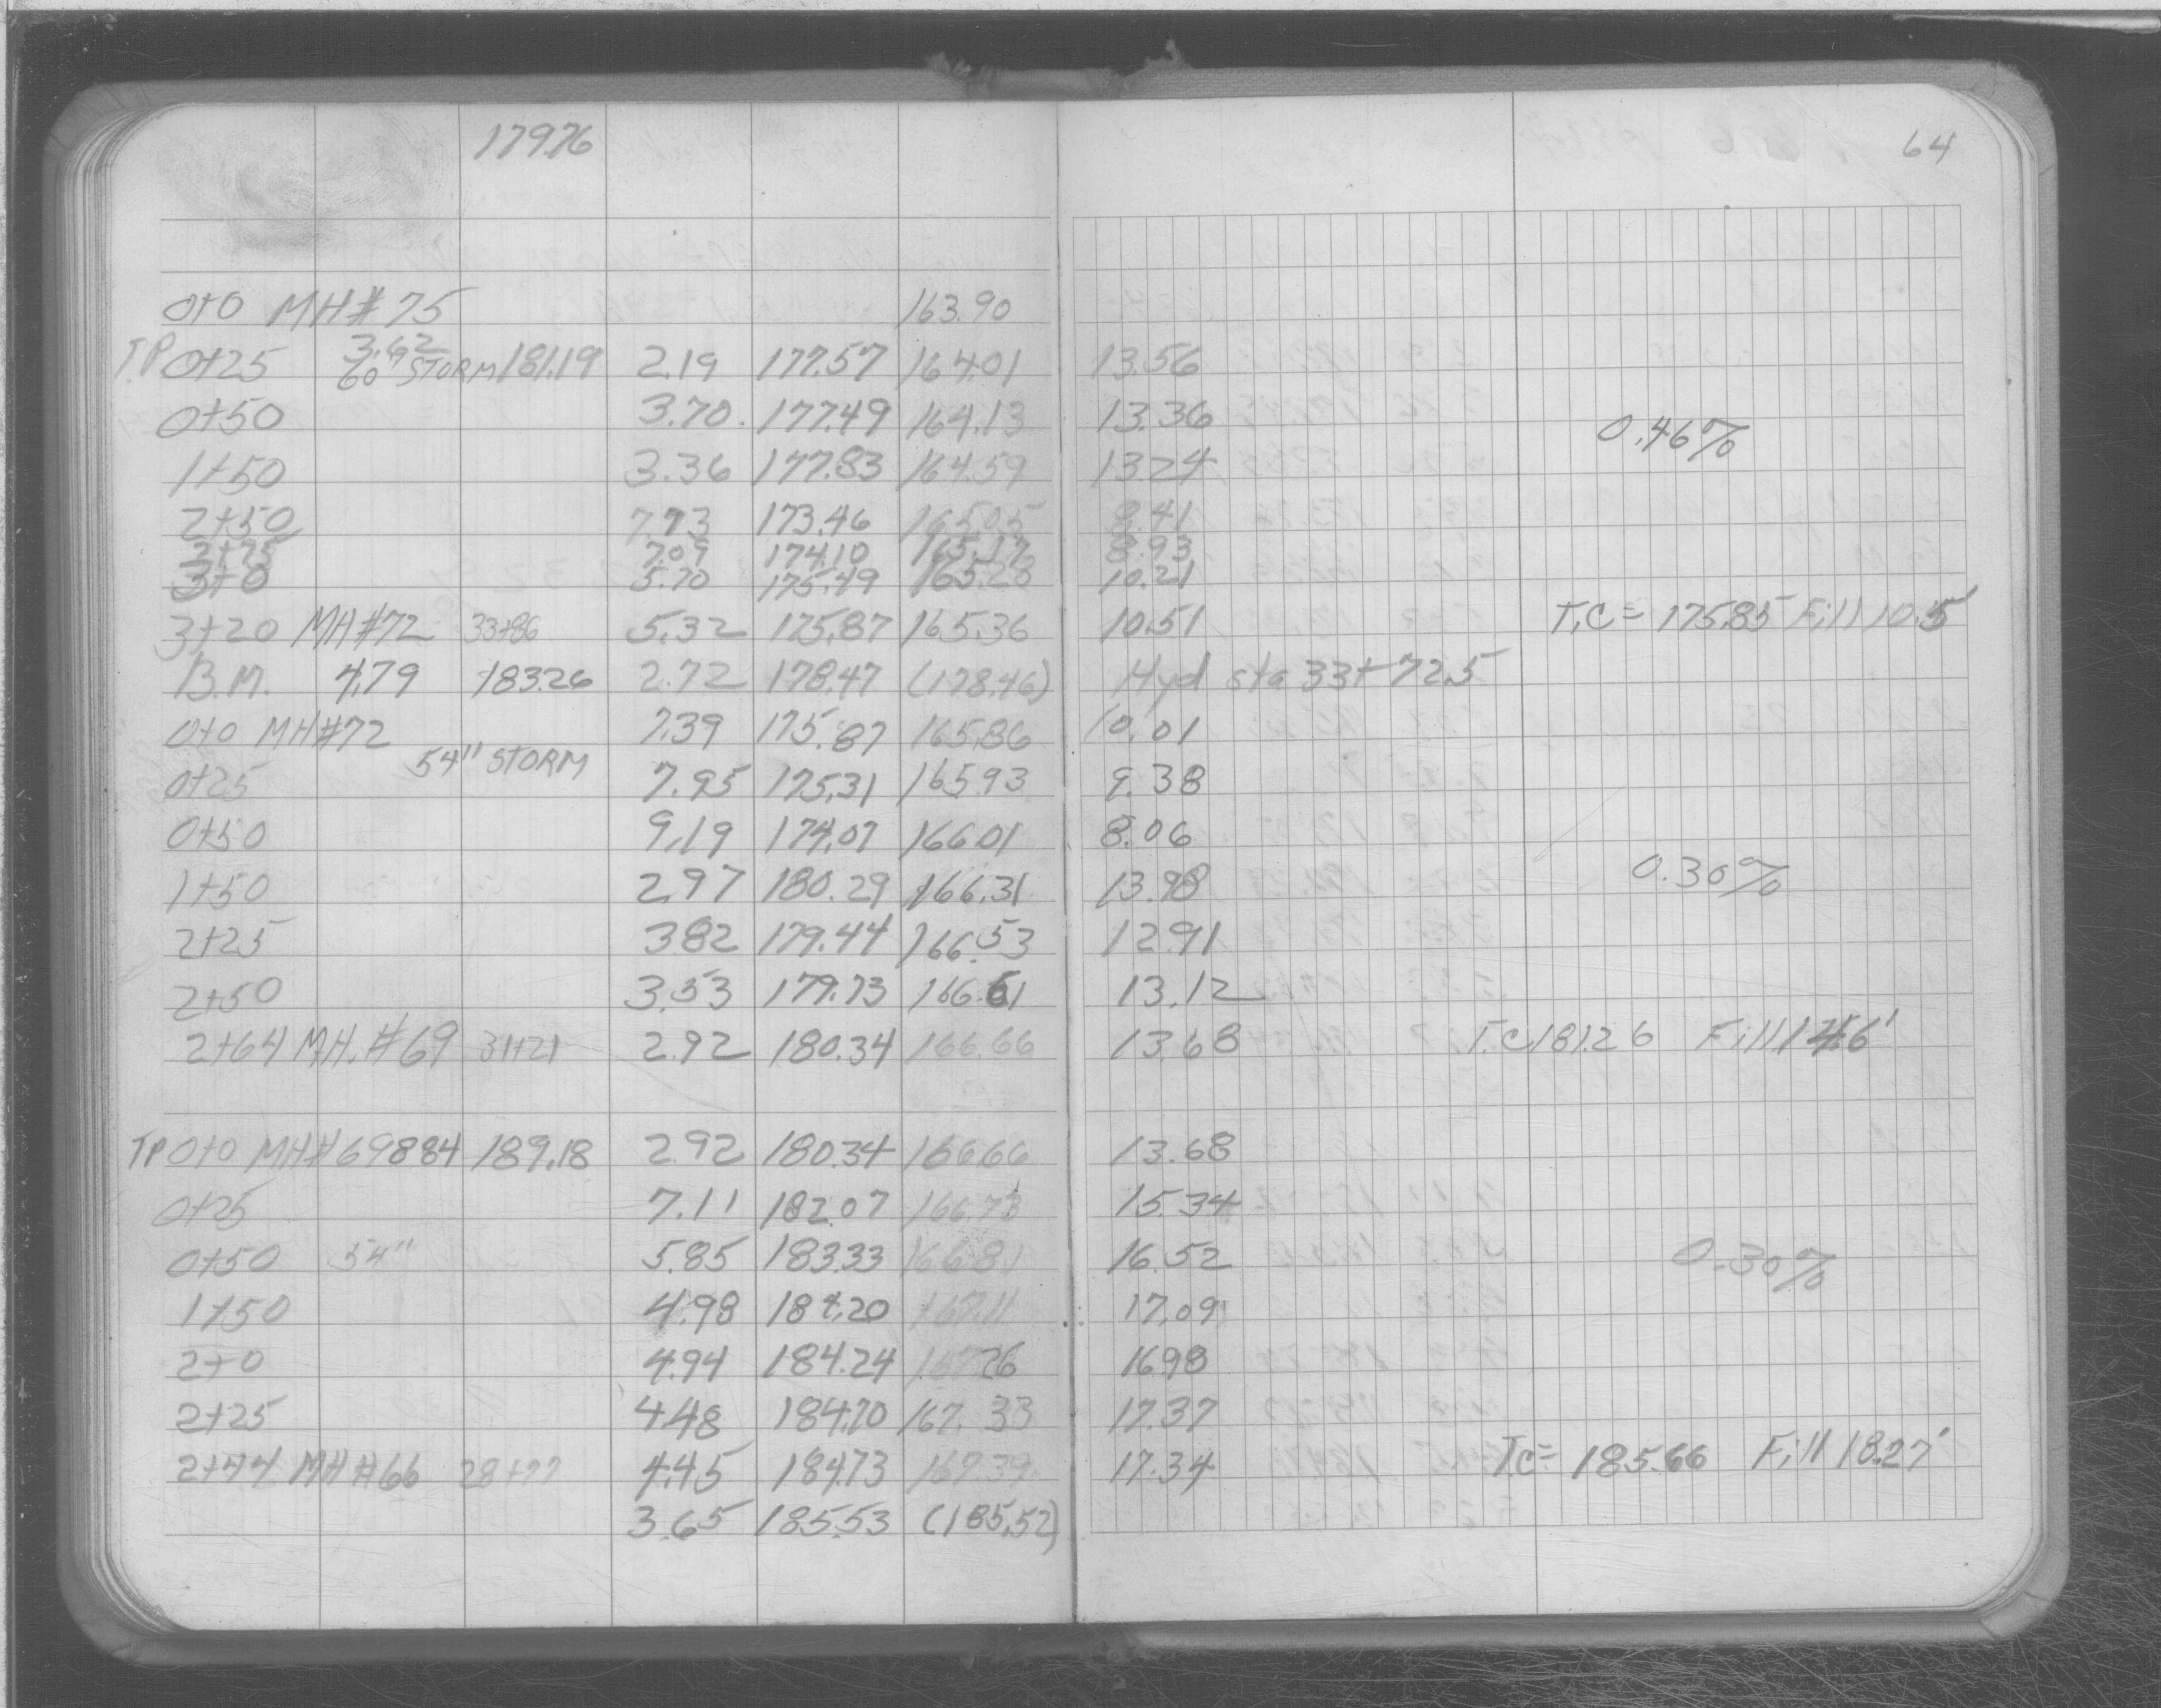 179.76 64
0+0 MH#75 163.90
3.62
T.P. 0+25 60" STORM 181.19 2.19 177.57 164.01 13.56
0+50 3.70 177.49 164.13 13.36 0.46%
1+50 3.36 177.83 164.59 13.24
2+50 7.73 173.46 165.05 8.41
2+75 7.09 174.10 165.17 8.93
3+0 5.70 175.49 165.28 10.21
3+20 MH#72 33+86 5.32 175.87 165.36 10.51 T.C= 175.85 Fill 10.5
B.M. 4.79 183.26 2.72 178.47 (178.46) Hyd sta 33+72.5
0+0 MH#72 7.39 175.87 165.86 10.01
54" STORM
0+25 7.95 175.31 165.93 9.38
0+50 9.19 174.07 166.01 8.06
1+50 2.97 180.29 166.31 13.98 0.30%
2+25 3.82 179.44 166.53 12.91
2+50 3.53 179.73 166.61 13.12
2+64 M.H. #69 31+21 2.92 180.34 166.66 13.68 T.C 181.26 Fill 14.6'
TP 0+0 MH#69 8.84 189.18 2.92 180.34 166.66 13.68
0+25 7.11 182.07 166.73 15.34
0+50 54" 5.85 183.33 166.81 16.52 0.30%
1+50 4.98 184.20 167.11 17.09
2+0 4.94 184.24 167.26 16.98
2+25 4.48 184.70 167.33 17.37
2+44 MH#66 28+77 4.45 184.73 167.39 17.34 Tc= 185.66 Fill 18.27'
3.65 185.53 (185.52)